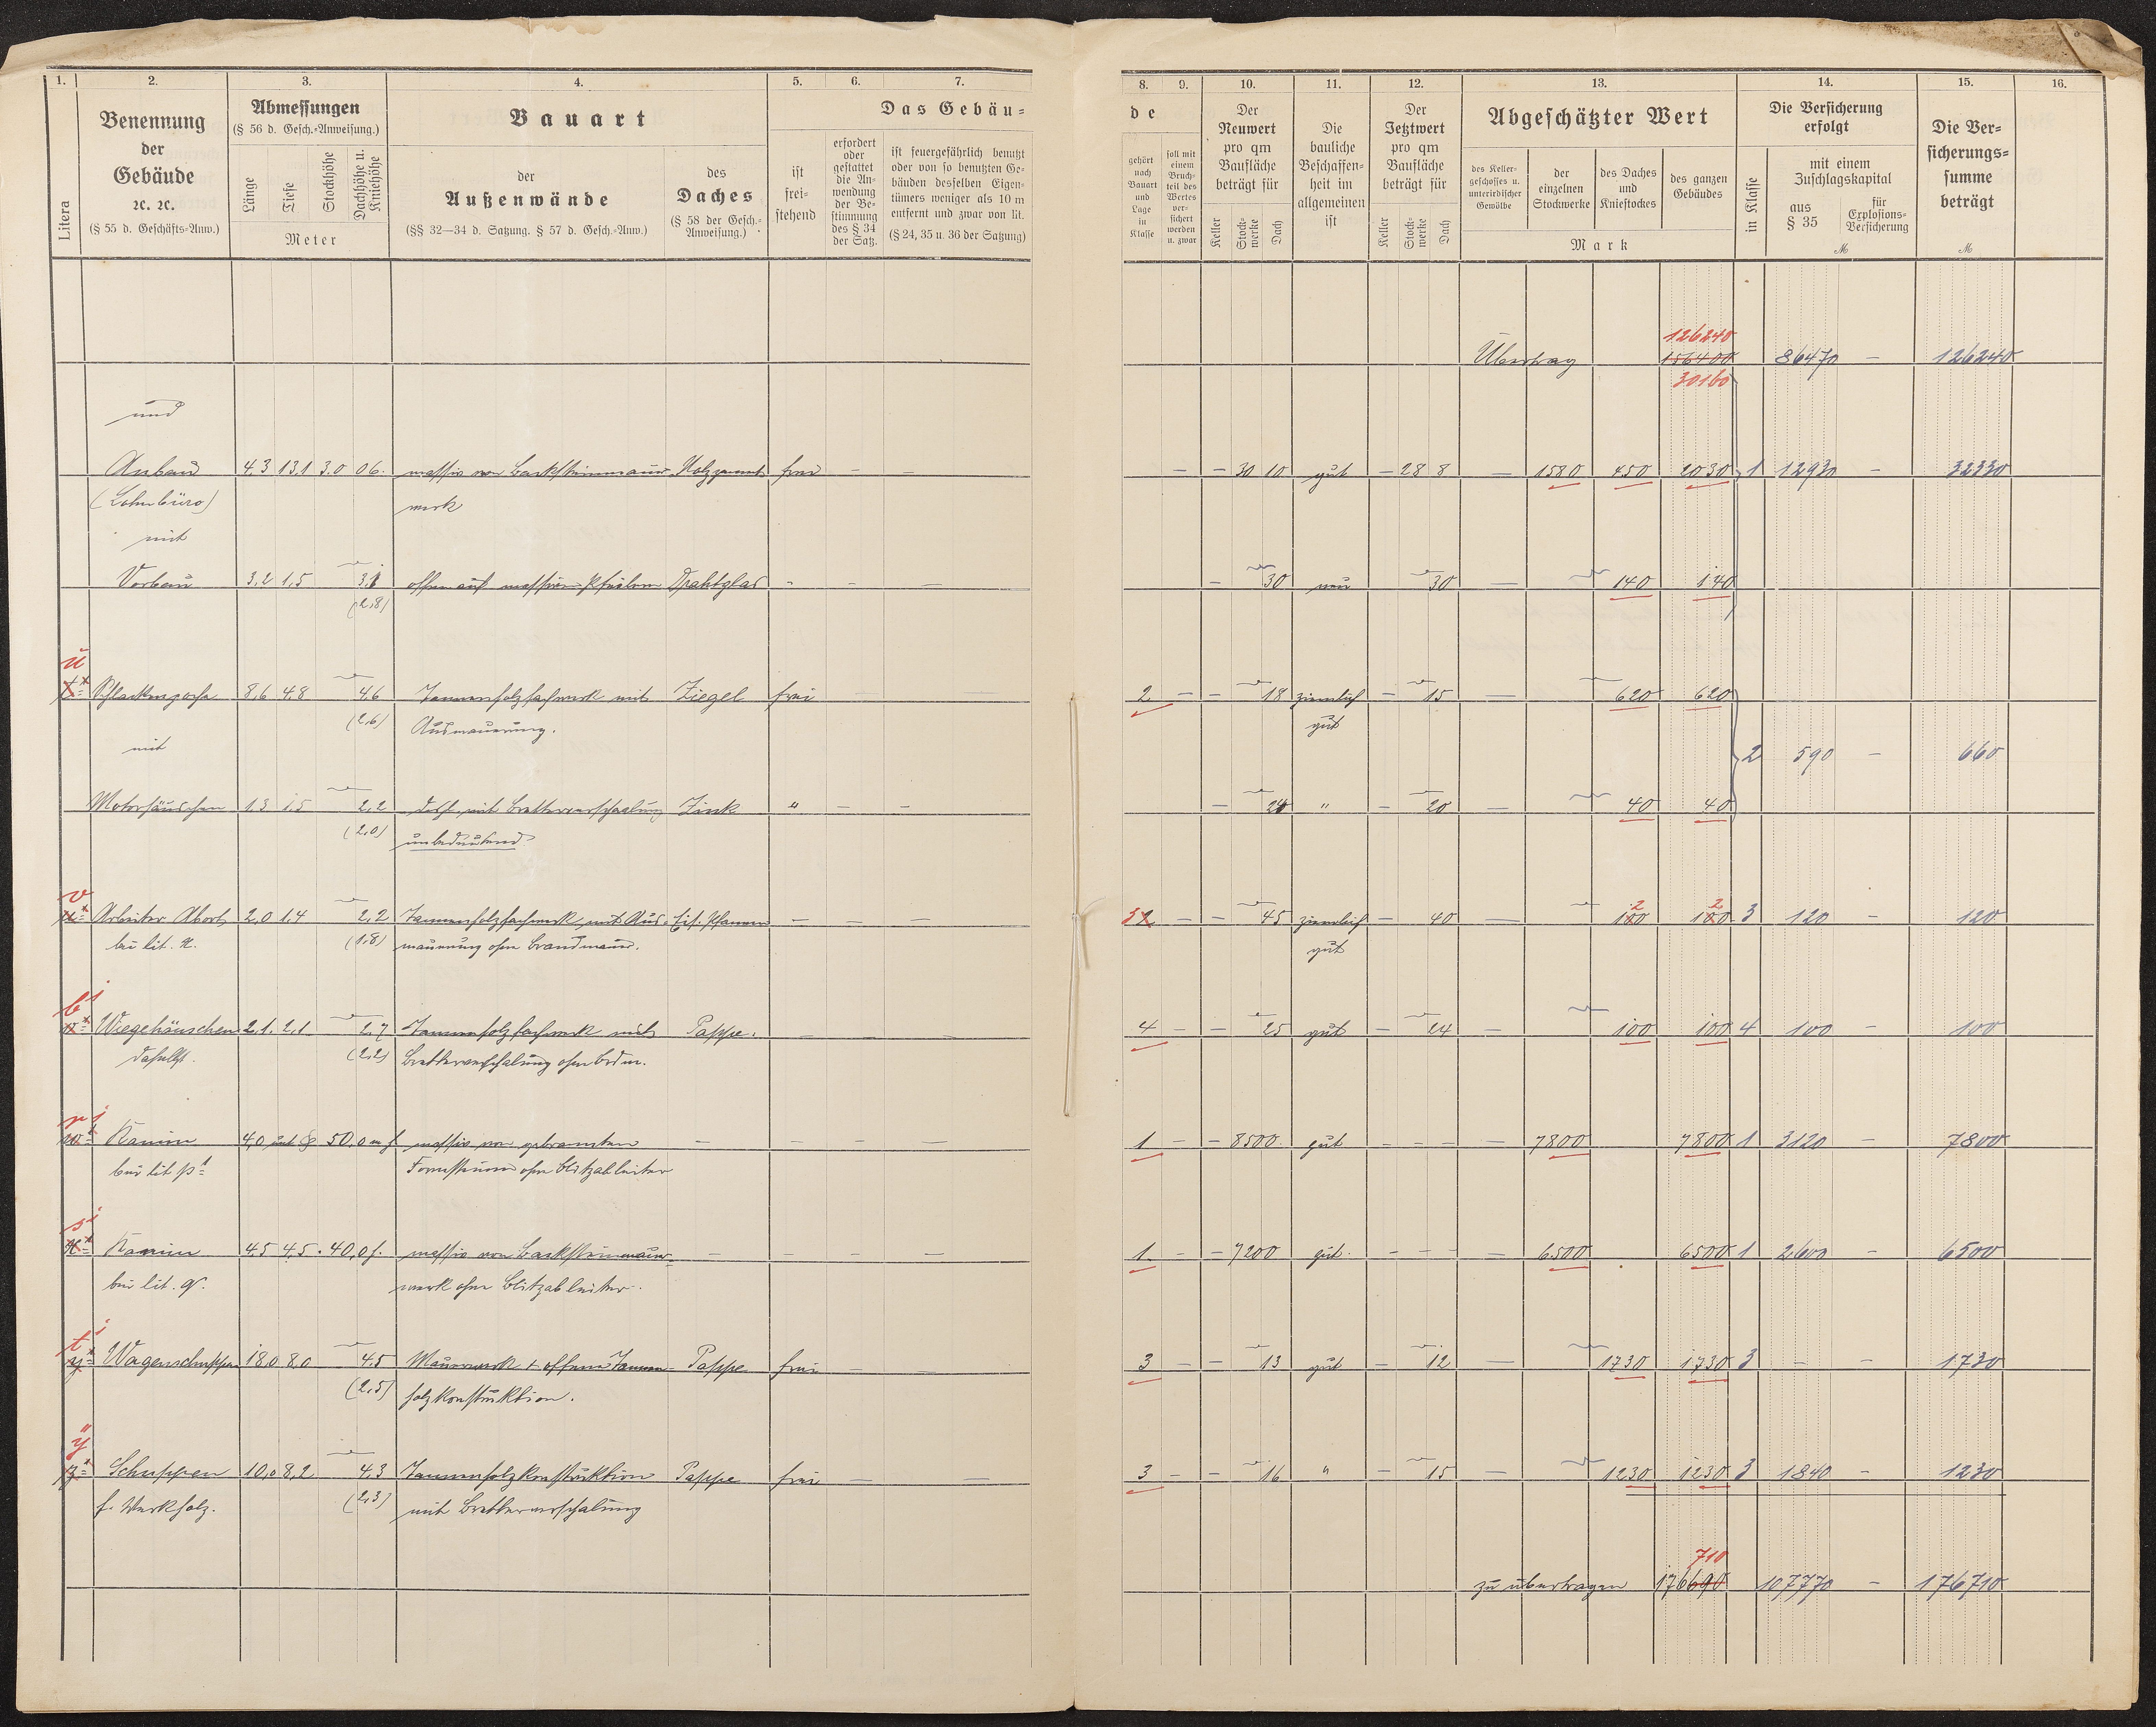 1. 2. 3. 4. 5. 6. 7.
Litera
Benennung
der
Gebäude
ꝛc. ꝛc.
(§ 55 d. Geschäfts-Anw.)
Abmessungen
(§ 56 d. Gesch.-Anweisung.)
Länge Tiefe Stockhöhe Dachhöhe u. Kniehöhe
Meter
Bauart
der
Außenwände
(§§ 32—34 d. Satzung. § 57 d. Gesch.-Anw.)
des
Daches
(§ 58 der Gesch.-
Anweisung.)
Das Gebäu-
ist
frei-
stehend
erfordert
oder
gestattet
die An-
wendung
der Be-
stimmung
des § 34
der Satz.
ist feuergefährlich benutzt
oder von so benutzten Ge-
bäuden desselben Eigen-
tümers weniger als 10 m
entfernt und zwar von lit.
(§ 24, 35 u. 36 der Satzung)
und
Anbau 4,3 13,1 3.0 0 6. massiv von Backsteinmauer- Holzzement frei — —
(Lohnbüro) werk
mit
Vorbau 3,2 1,5 3,1 offen auf massiven Pfeilern Drahtglas - — —
(2,8)
ü
Schlackenpoche 8,6 4,8 4,6 Tannenholzfachwerk mit Ziegel frei
(2,6) Ausmauerung.
mit
Motorhäuschen 1,3 1,5 2,2 desgl. mit Bretterverschalung Zink " — —
(2,0) unbedeutend
v
Arbeiter Abort 2,0 1,4 2,2 Tannenholzfachwerk mit Aus- Eis. Pfannen — — —
bei lit. n. (1,8) mauerung ohne Brandmauer.
b¹
Wiegehäuschen 2,1. 2,1 2,7 Tannenholzfachwerk mit Pappe. — — —
daselbst. (2,2) Bretterverschalung ohne Bdm.
r¹
Kamin 4,0 50,0 m h massiv von gebrannten — — — —
bei lit p¹ Formsteinen ohne Blitzableiter
s¹
Kamin 4,5 4,5. 40,0 h. massiv von Backsteinmauer- — — — —
bei lit. q. werk ohne Blitzableiter.
t¹
Wagenschuppen 18,0 8,0 4,5 Mauerwerk + offene Tannen- Pappe frei — —
(2,5) holzkonstruktion.
ÿ
Schuppen 10,0 8,2 4,3 Tannenholzkonstruktion Pappe frei — —
f. Werkholz. (2,3) mit Bretterverschalung
8. 9. 10. 11. 12. 13. 14. 15. 16.
de
gehört
nach
Bauart
und
Lage
in
Klasse
soll mit
einem
Bruch-
teil des
Wertes
ver-
sichert
werden
u. zwar
Der
Neuwert
pro qm
Baufläche
beträgt für
Keller Stock-werke Dach
Die
bauliche
Beschaffen-
heit im
allgemeinen
ist
Der
Jetztwert
pro qm
Baufläche
beträgt für
Keller Stock-werke Dach
Abgeschätzter Wert
des Keller-
geschosses u.
unterirdischer
Gewölbe
der
einzelnen
Stockwerke
des Daches
und
Kniestockes
des ganzen
Gebäudes
Mark
Die Versicherung
erfolgt
in Klasse
mit einem
Zuschlagskapital
aus
§ 35
für
Explosions-
Versicherung
ℳ
Die Ver-
sicherungs-
summe
beträgt
ℳ
126240
Übertrag 156400 86470 — 126240
30160
— — 30 10 gut — 28 8 — 1580 450 2030 1 12930 — 32330
— 30 neu 30 — 140 140
2 — — 18 ziemlich — 15 — 620 620
gut
2 590 — 660
— 24 " — 20 — 40 40
3 2 — — 45 ziemlich — 40 — 2 100 2 100 3 120 — 120
gut
4 — — 25 gut — 24 — 100 100 4 100 — 100
1 — — 8500. gut — — — — 7800 7800 1 3120 — 7800
1 — — 7200 gut. — — — — 6500 6500 1 2600 — 6500
3 — — 13 gut — 12 — 1730 1730 3 — — 1730
3 — — 16 " — 15 — 1230 1230 3 1840 — 1230
710
zu übertragen 176690 107770 — 176710